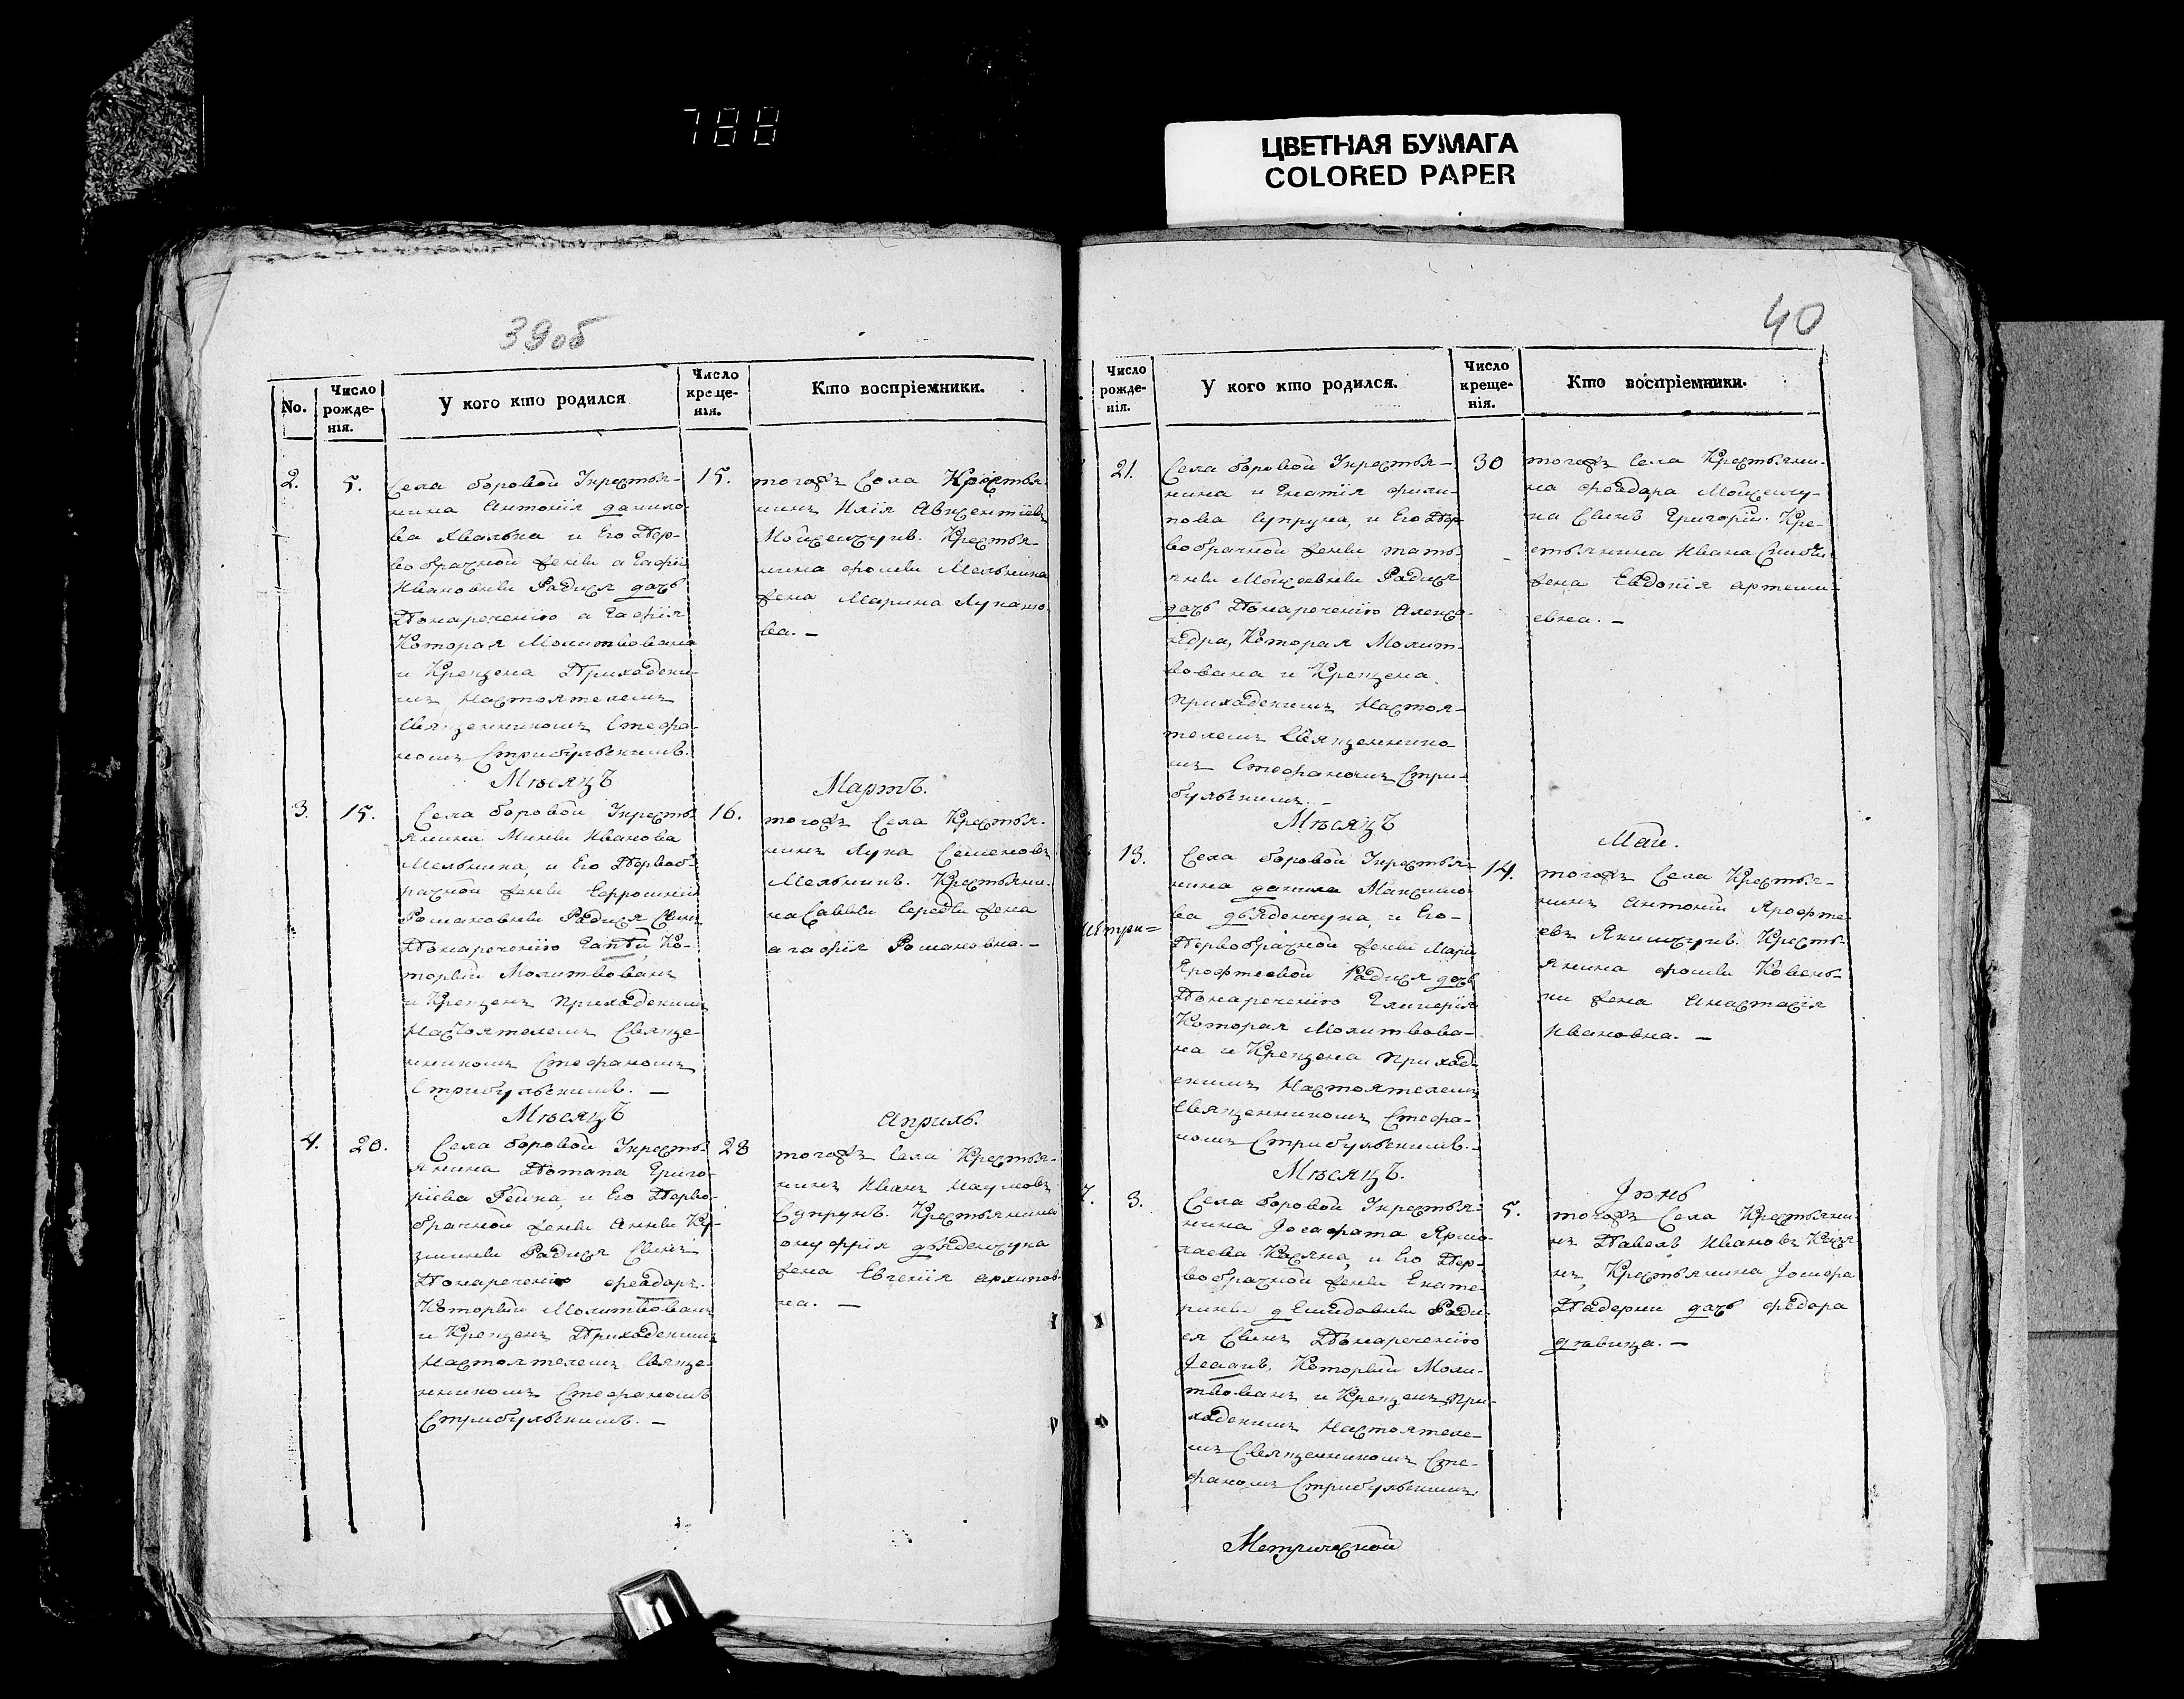 788
ЦВЕТНАЯ БУМАГА
COLORED PAPER
39об
No.
Число рожде-нія.
У кого кто родился
Число креще-нія.
Кто воспріемники.
2.
5.
15.
Села боровой Укрестья-
нина Антонія данило-
ва Хвалька и Его Пер-
вобрачной жены агафіи
Ивановны Радися дочь
Понареченію агафія
Которая Молитвована
и Крещена Приходски-
мъ Настоятелемъ
Священникомъ Стефа-
номъ Стрибульскимъ.
тогожъ Села Крестья-
нинъ Илія Авксентіевъ
Мойсейчукъ. Крестья-
нина фомы Мельника
жена Марина Лукано-
ва. —
Мѣсяцъ
Мартъ.
3.
15.
16.
Села боровой Укресть-
янина Минвы Иванова
Мельника, и Его Первоб-
рачной жены Евфросиніи
Романовны Радися Сынъ
Понареченію Ко-
торый Молитвованъ
и Крещенъ Приходскимъ
Настоятелемъ Свяще-
нникомъ Стефаномъ
Стрибульскимъ. —
тогожъ Села Крестья-
нинъ Лука Семеновъ
Мельникъ. Крестьяни-
на Саввы Середы жена
агафія Романовна. —
Мѣсяцъ
Априль.
4.
20.
28
Села боровой Укресть-
янина Потапа Григо-
ріева Гейка, и Его Перво-
брачной жены Анны Ку-
зминны Радися Сынъ
Понареченію феадоръ.
Который Молитвованъ
и Крещенъ Приходскимъ
Настоятелемъ Свяще-
нникомъ Стефаномъ
Стрибульскимъ. —
тогожъ Села Крестья-
нинъ Иванъ Наумовъ
Супрунъ. Крестьянина
онуфрія дьяденчука
жена Евгенія архипов-
на. —
40
Число рожде-нія.
У кого кто родился.
Число креще-нія.
Кто воспріемники.
21.
30
Села боровой Укрестья-
нина Игнатія фили-
пова Супруна, и Его Пер-
вобрачной жены тать-
яны Мойсеевны Радися
дочь Понареченію Алекса-
ндра, Которая Молит-
вована и Крещена
приходскимъ Настоя-
телемъ Священнико-
мъ Стефаномъ Стри-
бульскимъ. —
тогожъ Села Крестьяни-
на феадара Мойсейчу-
ка Сынъ Григорій. Кре-
стьянина Ивана
жена Евдокія артеми-
евна. —
Мѣсяцъ
Маи.
13.
14.
Села боровой Укрестья-
нина данила Максимо-
ва дьяденчука, и Его
Первобрачной жены Маріи
Ерофтеевой Радися дочь
Понареченію Гликерія
Которая Молитвова-
на и Крещена приход-
скимъ Настоятелемъ
Священникомъ Стефа-
номъ Стрибульскимъ. —
тогожъ Села Крестья-
нинъ Антоній Ярофте-
евъ Якимчукъ. Кресть-
янина фомы Ковень-
ки жена Анастасія
Ивановна. —
Мѣсяцъ.
Іюнь
7.
3.
5.
Села боровой Укрестья-
нина Іосафата Ярмо-
лаева Касяна, и Его Пер-
вобрачной жены Екате-
рины демидовны Ради-
ся Сынъ Понареченію
Который Моли-
твованъ и Крещенъ При-
ходскимъ Настоятеле-
мъ Священникомъ Сте-
фаномъ Стрибульскимъ.
тогожъ Села Крестьяни-
нъ Павелъ Ивановъ Кася-
нъ, Крестьянина Іосифа
Падерки дочь федора
дѣвица. —
Метрической